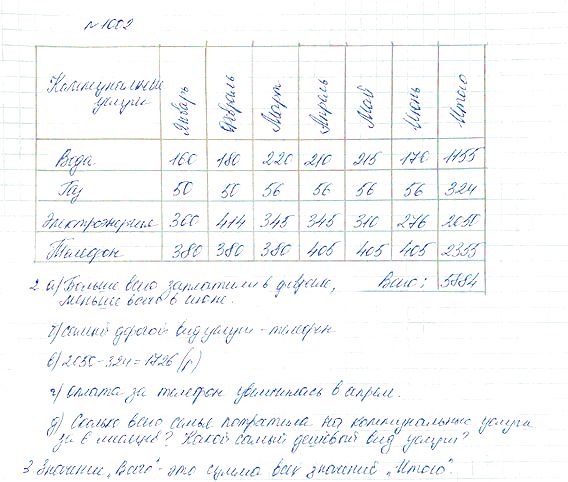 № 1002
Коммунальные услуги Январь Февраль Март Апрель Май Июнь Итого
Вода 160 180 220 210 215 170 1155
Газ 50 50 56 56 56 56 324
Электроэнергия 300 414 345 345 310 276 2050
Телефон 380 380 380 405 405 405 2355
2. а) Больше всего заплатили в феврале, Всего: 5884
меньше всего в июне.
б) самый дорогой вид услуги - телефон
в) 2050-324=1726 (р)
г) оплата за телефон увеличилась в апреле.
д) Сколько всего семья потратила на коммунальные услуги
за 6 месяцев? Какой самый дешевый вид услуги?
3. Значение "Всего" - это сумма всех значений "Итого".